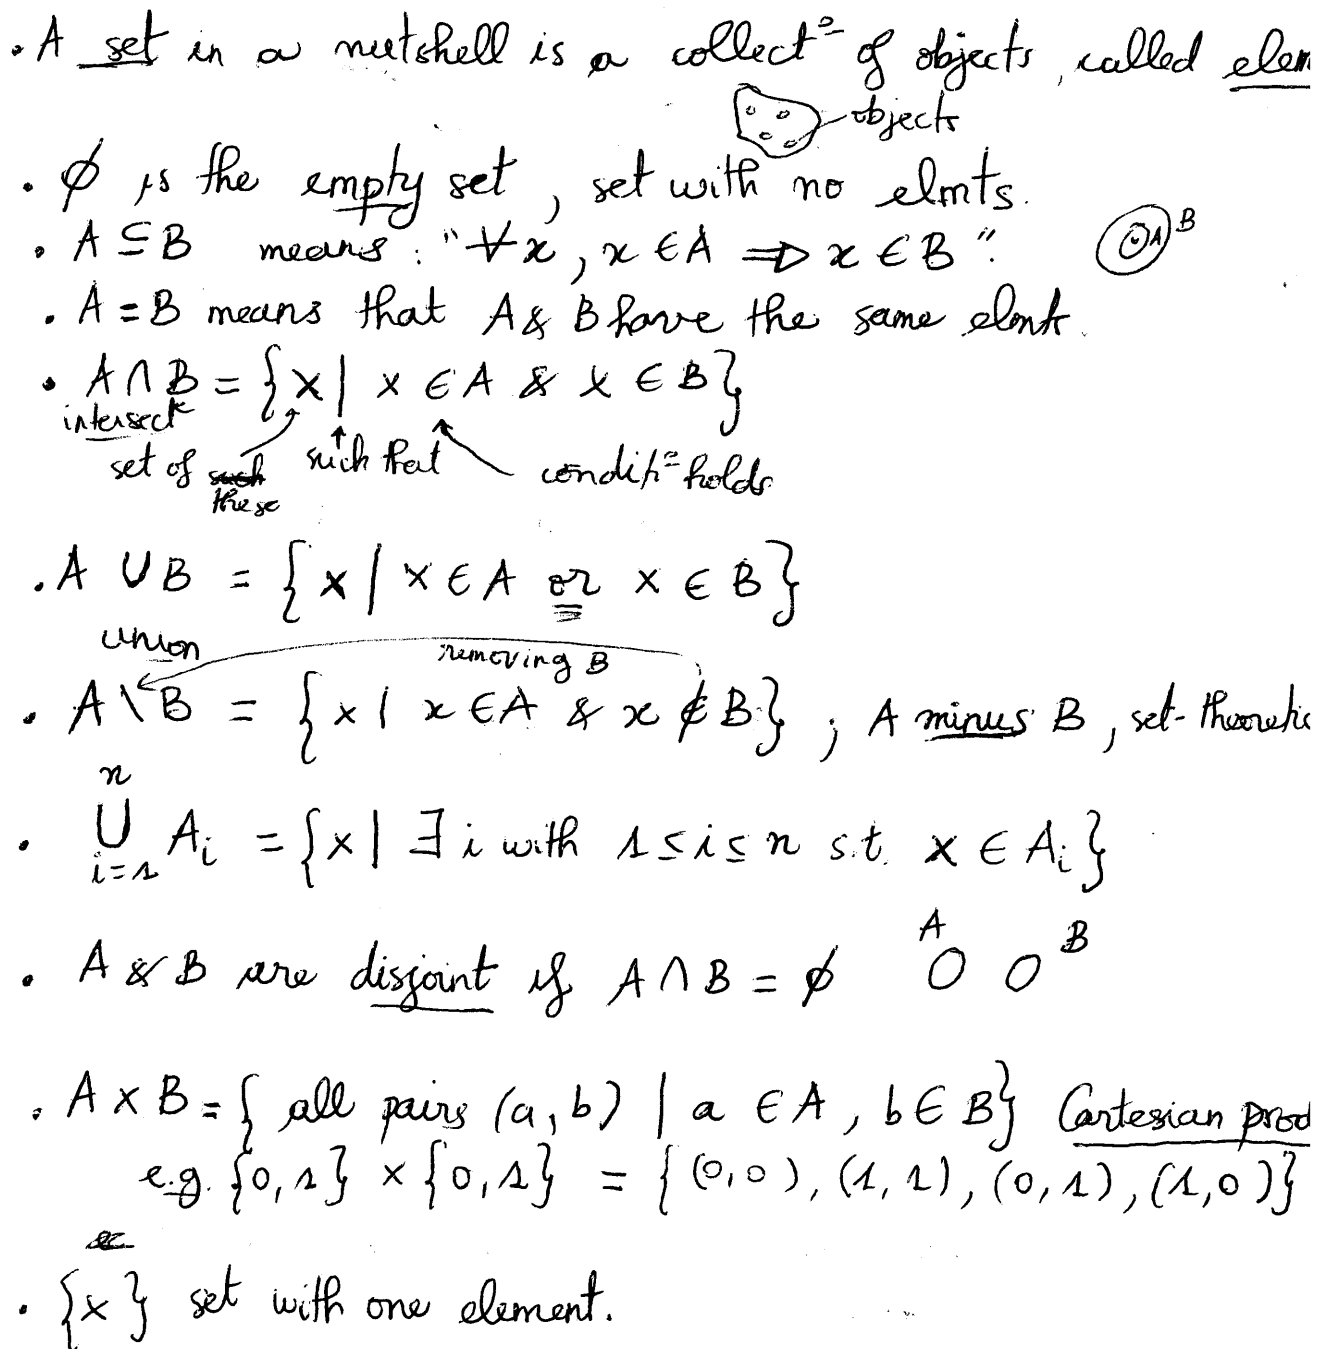 • A set in a nutshell is a collect° of objects, called elem
objects
• ∅ is the empty set, set with no elmts.
• A ⊆ B means: "∀x, x ∈ A ⇒ x ∈ B".
A B
• A = B means that A & B have the same elmts.
• A ∩ B = {x | x ∈ A & x ∈ B}
intersect°
set of these such that condit° holds
• A ∪ B = {x | x ∈ A or x ∈ B}
union
removing B
• A \ B = {x | x ∈ A & x ∉ B} ; A minus B, set-theoretic
n
• ∪ A_i = {x | ∃ i with 1 ≤ i ≤ n s.t. x ∈ A_i}
i=1
A B
• A & B are disjoint if A ∩ B = ∅
• A × B = { all pairs (a, b) | a ∈ A, b ∈ B} Cartesian prod
e.g. {0,1} × {0,1} = {(0,0), (1,1), (0,1), (1,0)}
• {x} set with one element.